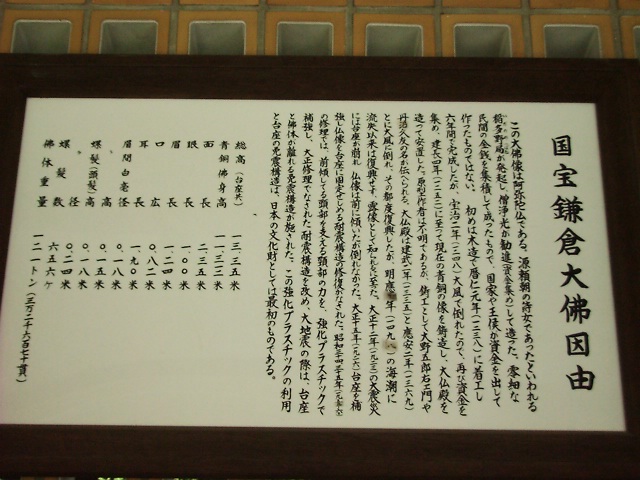 国宝鎌倉大佛因由
この大佛像は阿弥陀仏である。源頼朝の侍女であったといわれる
稲多野局が発起し、僧浄光が勧進(資金集め)して造った。零細な
民間の金銭を集積して成ったもので、国家や王侯が資金を出して
作ったものではない。初めは木造で暦仁元年(一二三八)に着工し
六年間で完成したが、宝治二年(一二四八)大風で倒れたので、再び資金を
集め、建長四年(一二五二)に至て現在の青銅の像を鋳造し、大仏殿を
造って安置した。原型作者は不明であるが、鋳工として大野五郎右エ門や
丹治久友の名が伝へられる。大仏殿は建武二年(一三三五)と應安二年(一三六九)
とに大風に倒れ、その都度復興したが、明應 年(一四九 )の海潮に
流失以来は復興せず、露像として知られるに至た。大正十二年(一九二三)の大震災
には台座が崩れ、仏像は前に傾いたが倒れなかった。大正十五年(一九二六)台座を補
強し仏像を台座に固定せしめる耐震構造の修復がなされた。昭和三十四・三十五年
の修理では、前傾してる頭部を支える頸部の力を、強化プラスチックで
補強し、大正修理でなされた耐震構造を改め、大地震の際は、台座
と佛体が離れる免震構造が施された。この強化プラスチックの利用
と台座の免震構造は、日本の文化財としては最初のものである。
総高(台座共) 一三・三五米
青銅佛身高 一一・三二米
面長 二・三五米
眼長 一・〇〇米
眉長 一・二四米
口広 〇・八二米
耳長 一・九〇米
眉間白毫径 〇・一八米
螺髪(頭髪)高 〇・一八米
螺髪径 〇・二四米
螺髪数 六五六ヶ
佛体重量 一二一トン(三万二千六百七十貫)